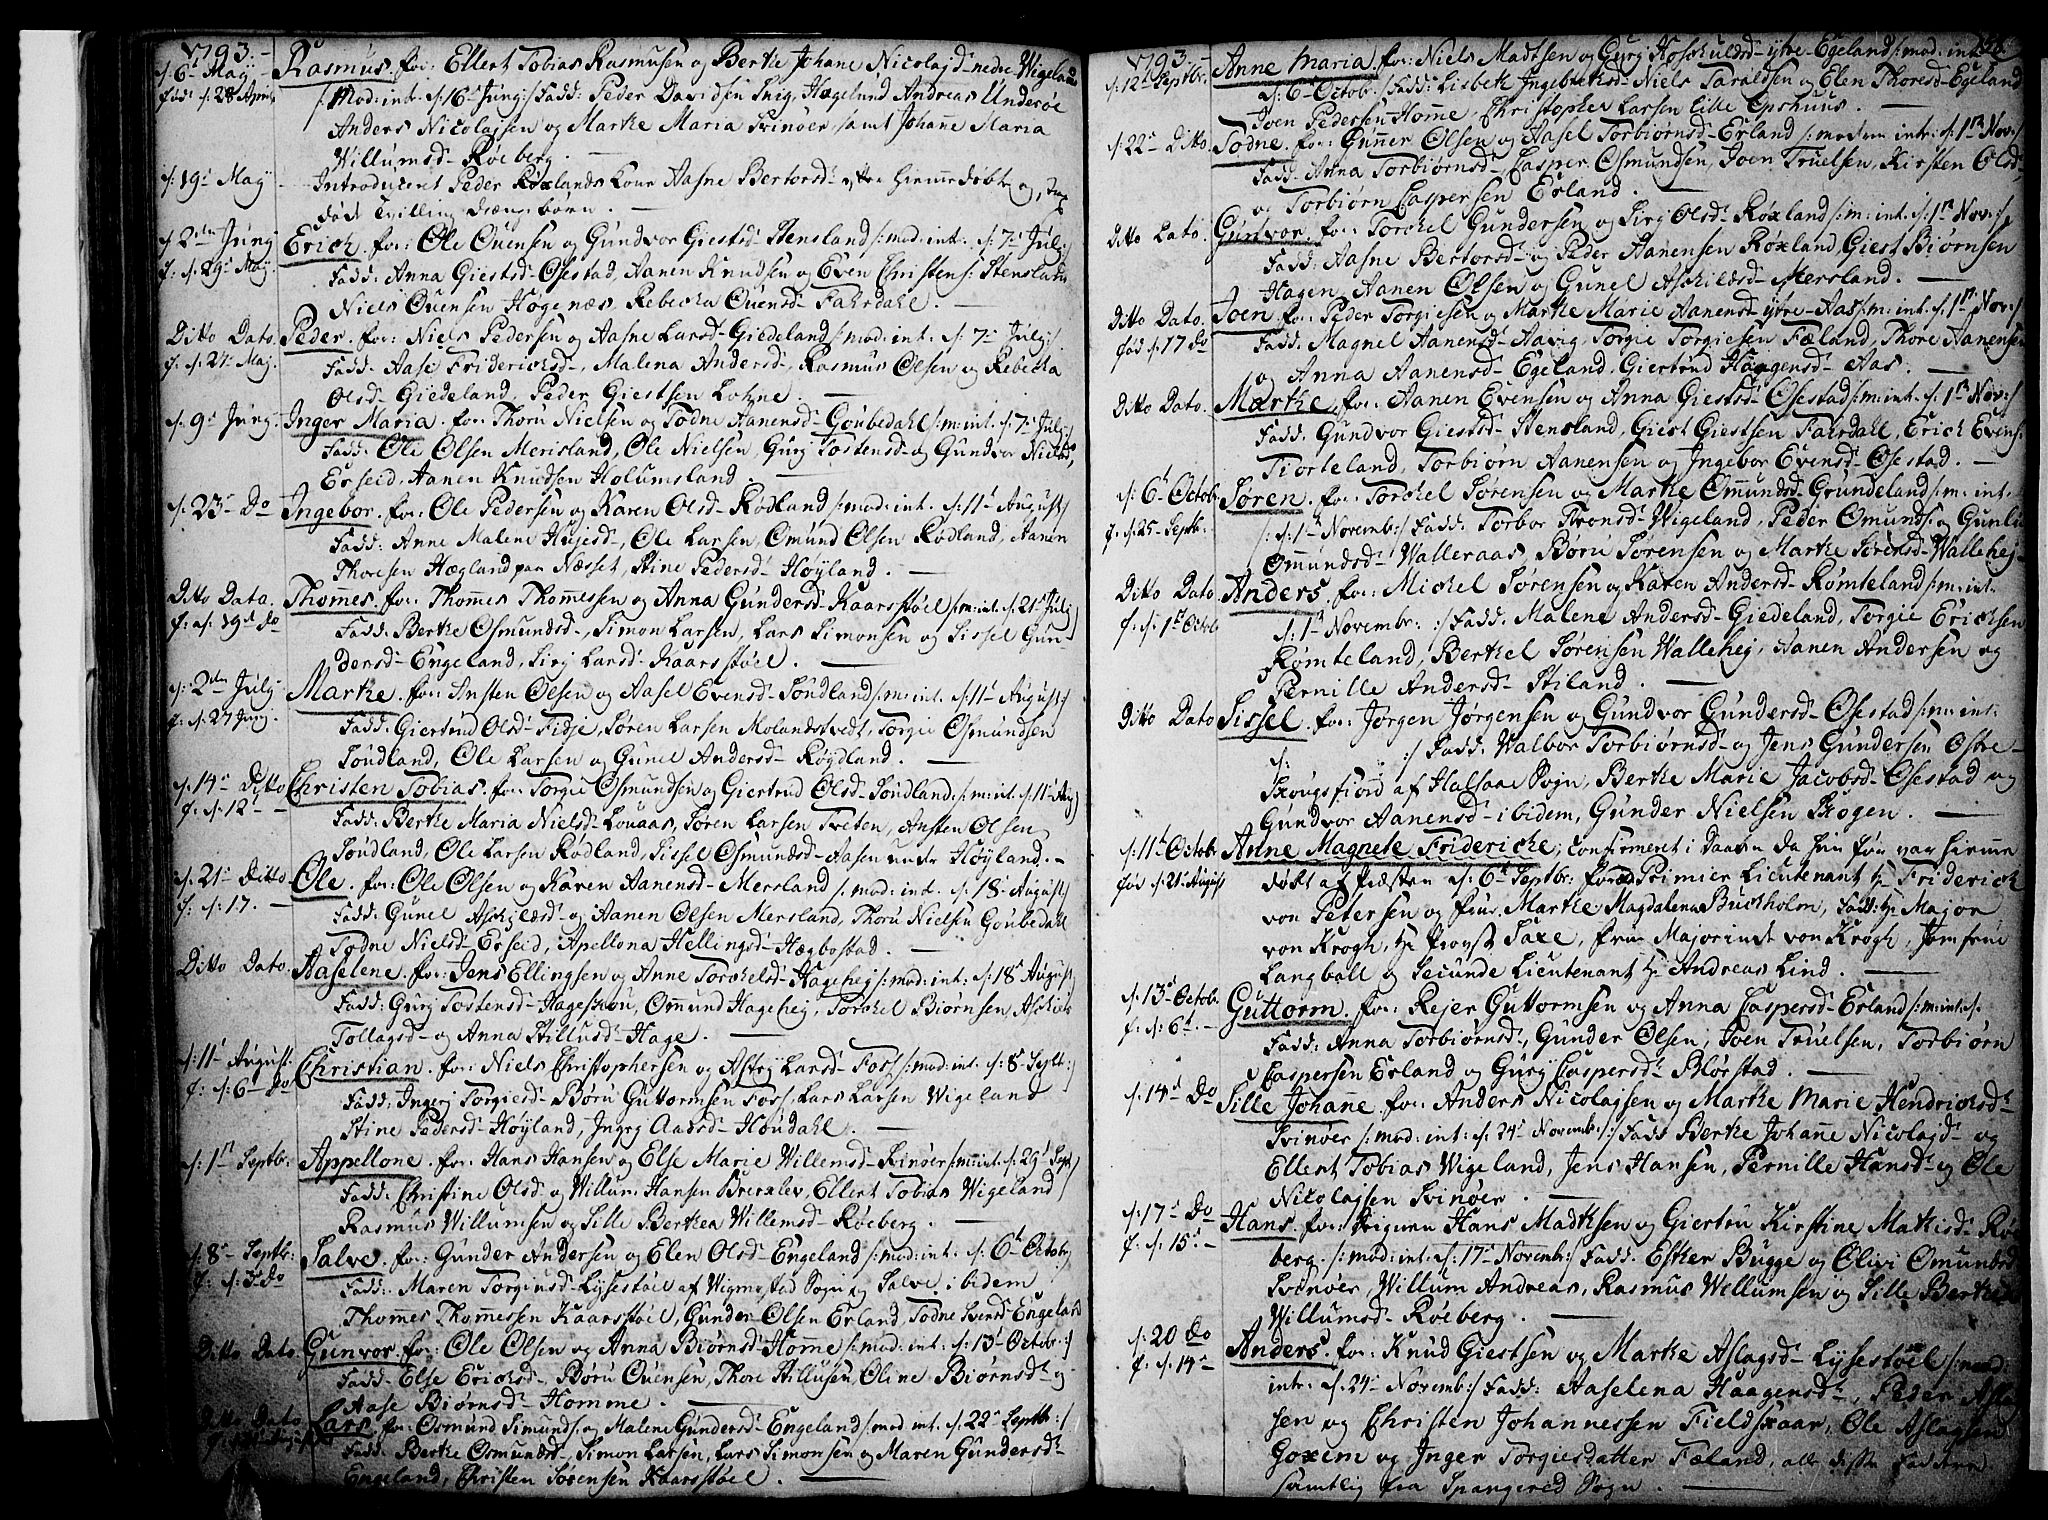 1793.
d. 6te Maij. Rasmus. for: Ellert Tobias Rasmusen og Berte Johane Nicolajsd. nedre Wigeland
fød d. 28 April /: mod: int. d. 16 Junj :/ Fadd: Peder Davidsen Snig, Høgelund, Andreas Underøe
Anders Nicolajsen og Marte Maria Svinøer, samt Johane Maria
Willumsd. Røeberg.
d. 19de Maij Introduceret Peder Røxlands Kone Aasne Bertorsd. efter hiemmedøbte og
døde Tvilling Drengebørn.
d. 2den Junj Erich. for: Ole Ouensen og Gundvor Giestsd. Stensland /: mod: int: d. 7de Julj :/
f: d. 29de Maij. Fadd: Anna Giestsd. Øsestad, Aanen Knudsen og Even Christens: Stensland
Niels Ouensen Høgenæs, Rebecka Ouensd. Fahrdahl.
Ditto Dato. Peder. for: Niels Pedersen og Aasne Larsd. Giedeland /: mod: int. d. 7de Julj :/
f: d. 27. Maj. Fadd: Aase Friderichsd., Malena Andersd., Rasmus Olsen og Rebecka
Olsd. Giedeland, Peder Giestsen Lohne.
d. 9de Junj. Inger Maria. for: Thoru Nielsen og Todne Aanensd. Goubedahl /: m: int. d. 7de Julj :/
Fadd: Ole Olsen Merisland, Ole Nielsen, Gurj Tostensd. og Gundvor Nielsd.
Erseid, Aanen Knudsen Holumsland.
d. 23de Do Ingebor. for: Ole Pedersen og Karen Olsd. Rødland /: mod: int. d. 11te August :/
Fadd: Anne Malene Hujesd., Ole Larsen, Omund Olsen Rødland, Aanen
Thoresen Høgland paa Næsset, Stine Pedersd. Høyland.
Ditto Dato. Thomes. for: Thomes Thomessen og Anna Gundersd. Kaarstøel /: m: int. d. 21de Julj :/
f: d. 19de Do Fadd: Berte Osmundsd., Simon Larsen, Lars Simonsen og Sissel Gun-
dersd. Engeland, Sirj Larsd. Kaarsstøel.
d. 2den Julj Marte. for: Ansten Olsen og Aasel Evensd. Soudland /: m: int. d. 11te August :/
f: d. 27 Junj. Fadd: Giertrud Olsd. Fidje, Søren Larsen Molandstvedt, Torgie Osmundsen
Soudland, Ole Larsen og Gunel Andersd. Røydland.
d. 14de Ditto Christen Tobias. for: Torgie Osmundsen og Giertrud Olsd. Soudland. /: m: int. d. 11te Aug :/
f: d. 12te Fadd: Berte Maria Nielsd. Louaas, Søren Larsen Tveten, Ansten Olsen
Soudland, Ole Larsen Rødland, Sissel Osmundsd. Aasen under Høyland.
d. 21de Ditto Ole. for: Ole Olsen og Karen Aanensd. Mersland /: mod: int. d. 18de August :/
f: d. 17. Fadd: Gunel Askjelsd. og Aanen Olsen Mersland, Thoru Nielsen Goubedahl
Todne Nielsd. Erseid, Apellona Hellingsd. Hægbostad.
Ditto Dato. Aaselene. for: Jens Ellingsen og Anne Torckelsd. Hagehej /: mod: int: d. 18de August :/
Fadd: Gurj Tostensd. Hageskou, Omund Hagehej, Torckel Biørnsen, Askier
Tollagsd. og Anna Stillusd. Hage.
d. 11te August. Christian. for: Niels Christophersen og Astrj Larsd. Foss /: mod: int. d. 8de Septb: :/
f: d. 6te Do Fadd: Ingerj Torgiersd. Børu Guttormsen Foss, Lars Larsen Wigeland
Stine Pedersd. Høyland, Ingrj Aadsd. Houdahl.
d. 1ste Septbr: Appellone. for: Hans Hansen og Else Marie Willemsd. Svinøer /: m: int. d. 29de Sept :/
Fadd: Christine Olsd. og Willum Hansen Brerelev, Ellert Tobias Wigeland
Rasmus Willumsen og Sille Bertea Willemsd. Røeberg.
d. 8de Septbr: Salve. for: Gunder Andersen og Elen Olsd. Engeland /: mod: int: d. 6te Octobr :/
f: d. 3 do Fadd: Maren Torgiusd. Lysestøel af Wigmostad Sogn og Salve ibidem
Thomes Thomessen Kaarsstøel, Gunder Olsen Erland, Todne Svensd. Engeland
Ditto Dato. Gunvor. for: Ole Olsen og Anna Biørnsd. Homme /: mod: int: d. 13de Octobr: :/
Fadd: Else Ericksd., Børu Ouensen, Thore Stillusen, Oline Biørnsd. og
Aase Biørnsd. Homme.
Ditto Dato Lars for: Osmund Simunds. og Malene Gundersd. Engeland /: mod int. d. 22de Septbr: :/
Fadd: Berte Osmundsd. Simon Larsen, Lars Simonsen og Maren Gundersd.
Engeland, Christen Sørensen Kaarsstøel.
1793.
d. 12te Septbr: Anne Maria. for: Niels Madtsen og Gurj Asskuldsd. ytre Egeland /: mod: int:
d. 6te Octobr :/ Fadd: Lisbeth Ingebretsd. Niels Taraldsen og Elen Thoresd. Egeland
Joen Pedersen Homme, Christopher Larsen lille Epshuus.
d. 22de Ditto. Todne. for: Gunner Olsen og Aasel Torbiørnsd. Erland /: modern intr: d. 1ste Nov: :/
Fadd: Anna Torbiørnsd. Casper Osmundsen, Joen Truelsen, Kirsten Olsd.
og Torbiørn Caspersen Erland.
Ditto Dato. Guntvor. for: Torckel Gundersen og Sirj Olsd. Røxland /: m: int. d. 1ste Nov: :/
Fadd: Aasne Bertorsd. og Peder Aanensen Røxland, Giest Biørnsen
Hagen, Aanen Olsen og Gunel Askieldsd. Mersland.
Ditto Dato. Joen. for: Peder Torgiesen og Marte Marie Aanensd. ytre Aas /: m: int. d. 1ste Nov: :/
fød d. 17 do Fadd: Magnel Aanensd. Aavig, Torgie Torgiesen Fæland, Thore Aanensen
og Anna Aanensd. Egeland, Giertrud Haagensd. Aas.
Ditto Dato. Marte. for: Aanen Evensen og Anna Giestsd. Øsestad /: m: int. d. 1ste Nov: :/
Fadd: Gundvor Giestsd. Stensland, Giest Giestsen Fahrdall, Erich Evens:
Tiorteland, Torbiørn Aanensen og Ingebor Evensd. Øsestad.
d. 6te Octobr Søren. for: Torckel Sørensen og Marte Omundsd. Grundeland /: m: int.
f: d. 25. Septbr: /: d. 1ste Novembr: :/ Fadd: Torbor Tronsd. Wigeland, Peder Omunds: og Gunlu
Omundsd. Walleraas, Børu Sørensen og Marte Sørensd. Wallehej.
Ditto Dato Anders. for: Michel Sørensen og Karen Andersd. Rømteland /: m: int.
f: d. 1ste Octobr d. 1ste Novembr: :/ Fadd: Malene Andersd. Giedeland, Torgie Ericksen
Rømteland, Bertel Sørensen Wallehej, Aanen Andersen og
Pernille Andersd. Stiland.
Ditto Dato Sissel. for: Jørgen Jørgensen og Gundvor Gundersd. Øsestad /: m: int:
d: :/ Fadd: Walbor Torbiørnsd. og Jens Gundersen Østre
Skougsfiord af Halsaae Sogn, Berte Marie Jacobsd. Øsestad og
Gundvor Aanensd. ibidem, Gunder Nielsen Skogen.
d. 11te Octobr Anne Magnete Fridericke, confirmeret i Daaben da hun før var hiemme
fød d. 21 August døbt af Præsten d. 6te Septbr: foræld: Primier Lieutenant Hr Friderick
von Petersen og frue Marte Magdalena Buckholm, Fadd: Hr Major
von Krogh, Hr Provst Saxe, frue Majorinde von Krogh, Jomfrue
Langball og Secunde Lieutenant Hr Andreas Lind.
d. 13de Octobr. Guttorm. for: Rejer Guttormsen og Anna Caspersd. Erland /: m: int. d.
f: d: 6te. Fadd: Anna Torbiørnsd., Gunder Olsen, Joen Truelsen, Torbiørn
Caspersen Erland og Gurj Caspersd. Blørstad.
d. 14de Do Sille Johanne. for: Anders Nicolajsen og Marte Marie Hendricksd.
Svinøer /: mod: int: d. 24de Novemb: :/ Fadd Berte Johanne Nicolajsd. og
Ellert Tobias Wigeland, Jens Hansen, Pernille Hansd. og Ole
Nicolajsen Svinøer.
d. 17de Do Hans. for: Hans Madtsen og Giertru Kirstine Mathisd. Røe
f. d. 15de berg. /: mod: int. d. 17de Novemb: :/ Fadd: Ester Bugge og Olivi Omundsd.
Svinøer, Willum Andreas, Rasmus Wellumsen og Sille Bertea
Willumsd. Røeberg.
d. 20 Do Anders. for: Knud Giestsen og Marte Aslagsd. Lysestøel /: mod:
f. d. 14de intr: d. 24de Novemb: :/ Fadd: Aaselena Haagensd., Peder Aslag
sen og Christen Johannessen Fieldskaar, Ole Aslagsen
Goxem og Inger Torgiesdatter Fæland, alle disse Faddere
samtlig fra Spangereid Sogn.